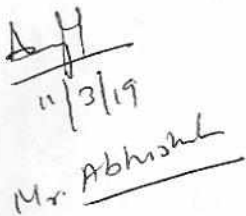 11/3/19
Mr. Abhishek